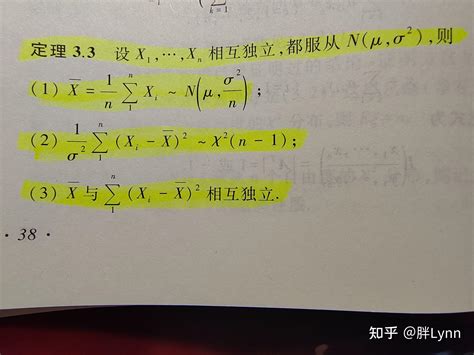 k=1
定理 3.3 设 X₁,⋯,Xₙ 相互独立,都服从 N(μ,σ²),则
(1) X̄ = 1/n ∑₁ⁿ Xᵢ ~ N(μ, σ²/n);
(2) 1/σ² ∑₁ⁿ (Xᵢ - X̄)² ~ χ²(n-1);
(3) X̄ 与 ∑₁ⁿ (Xᵢ - X̄)² 相互独立.
· 38 ·
知乎 @胖Lynn